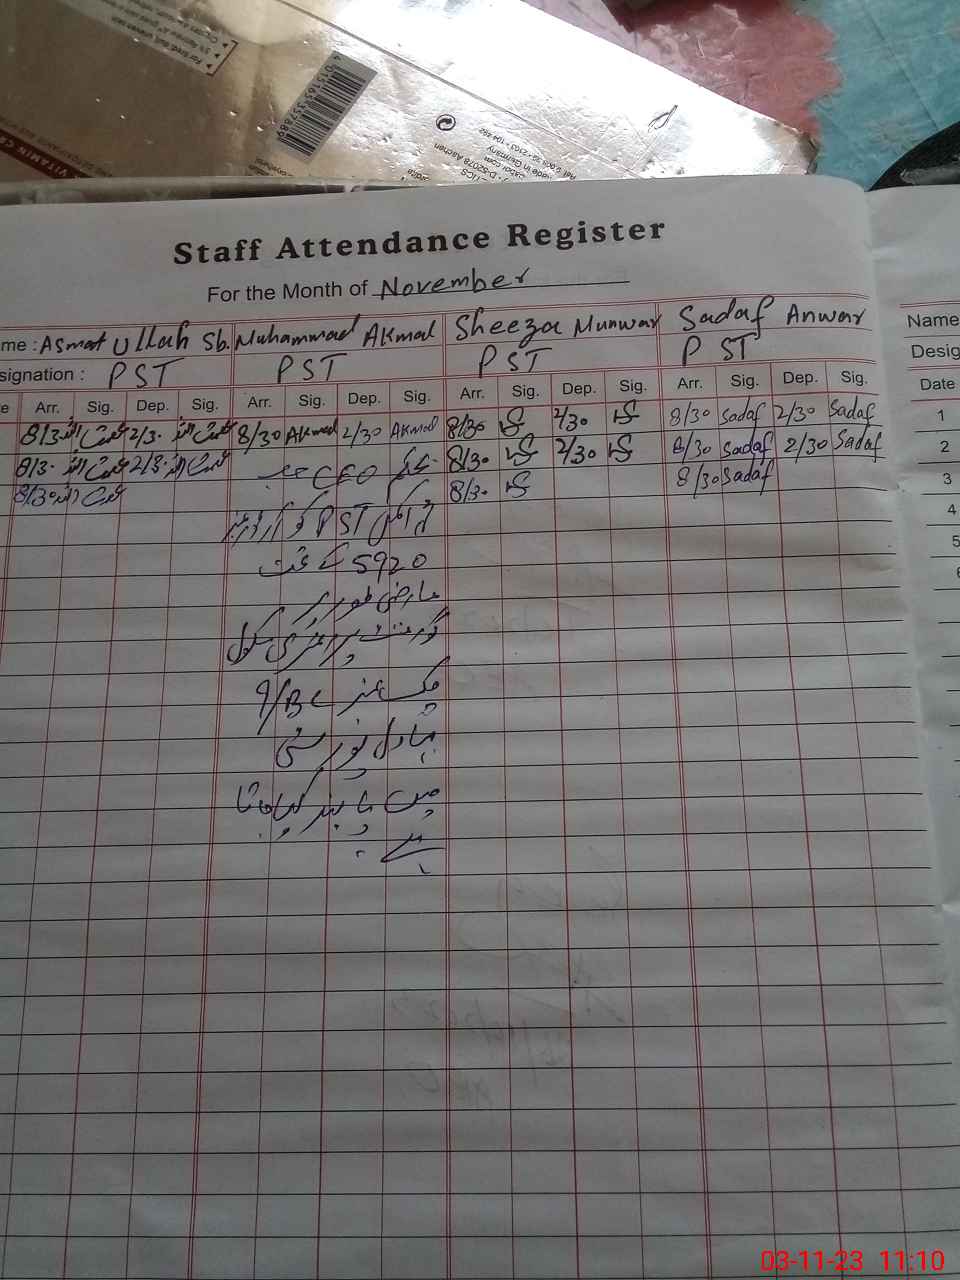 4015165357889
Made in Germany
D-52078 Aachen
VITAMIN C
Staff Attendance Register
For the Month of November
me : Asmat Ullah Sb. Muhammad Akmal Sheeza Munwar Sadaf Anwar
Name
signation : PST PST PST PST
Desig
te Arr. Sig. Dep. Sig. Arr. Sig. Dep. Sig. Arr. Sig. Dep. Sig. Arr. Sig. Dep. Sig.
Date
8/30 عصمت اللہ 2/30 عصمت اللہ 8/30 Akmal 2/30 Akmal 8/30 2/30 8/30 Sadaf 2/30 Sadaf
1
8/30 عصمت اللہ 2/30 عصمت اللہ بحکم CEO صاحب 8/30 2/30 8/30 Sadaf 2/30 Sadaf
2
8/30 عصمت اللہ 8/30 8/30 Sadaf
3
PST کو آرڈر نمبر
4
5920 کے تحت
5
عارضی طور پر
6
گورنمنٹ پرائمری سکول
چک نمبر 9/BC
میں
ہے
03-11-23 11:10